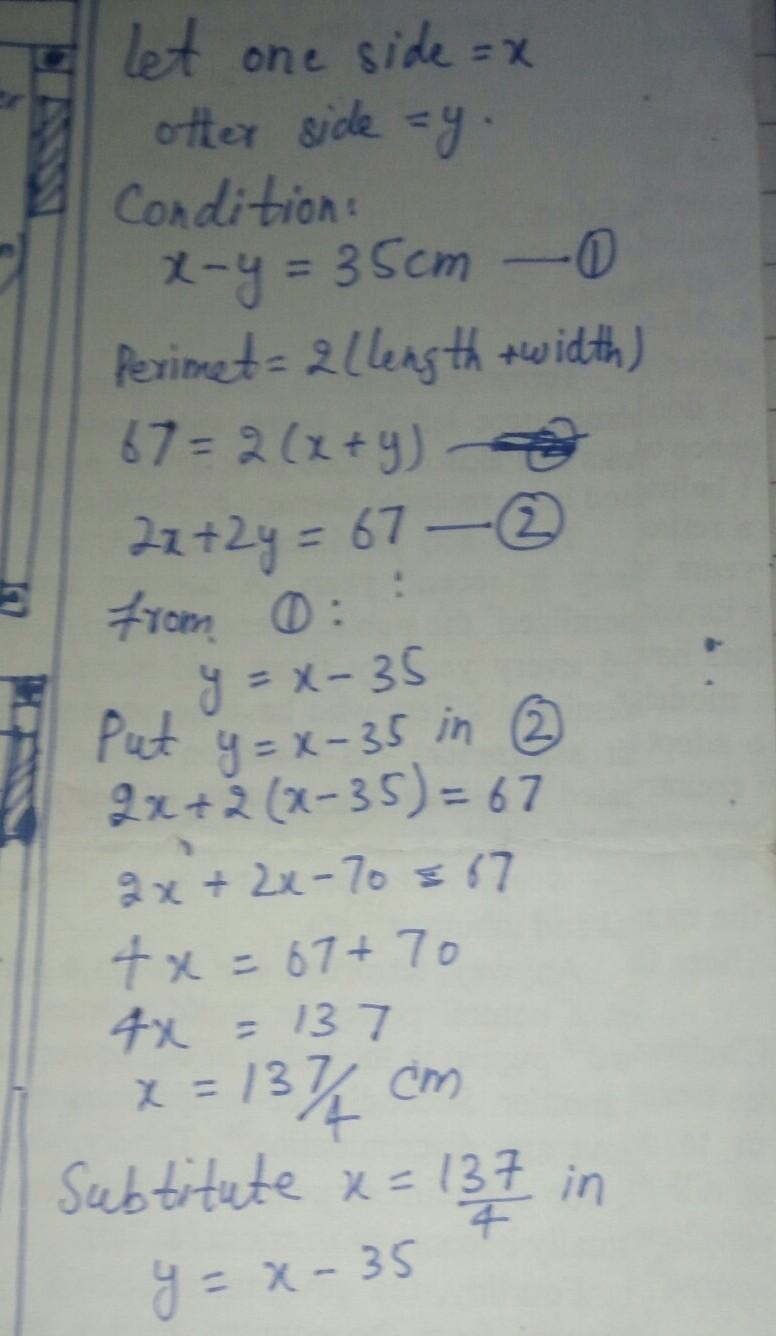 let one side = x
otter side = y.
Condition:
x - y = 35cm — ①
Perimet = 2(length + width)
67 = 2(x + y) —
2x + 2y = 67 — ②
from ① :
y = x - 35
Put y = x - 35 in ②
2x + 2(x - 35) = 67
2x + 2x - 70 = 67
4x = 67 + 70
4x = 137
x = 137/4 cm
Subtitute x = 137/4 in
y = x - 35